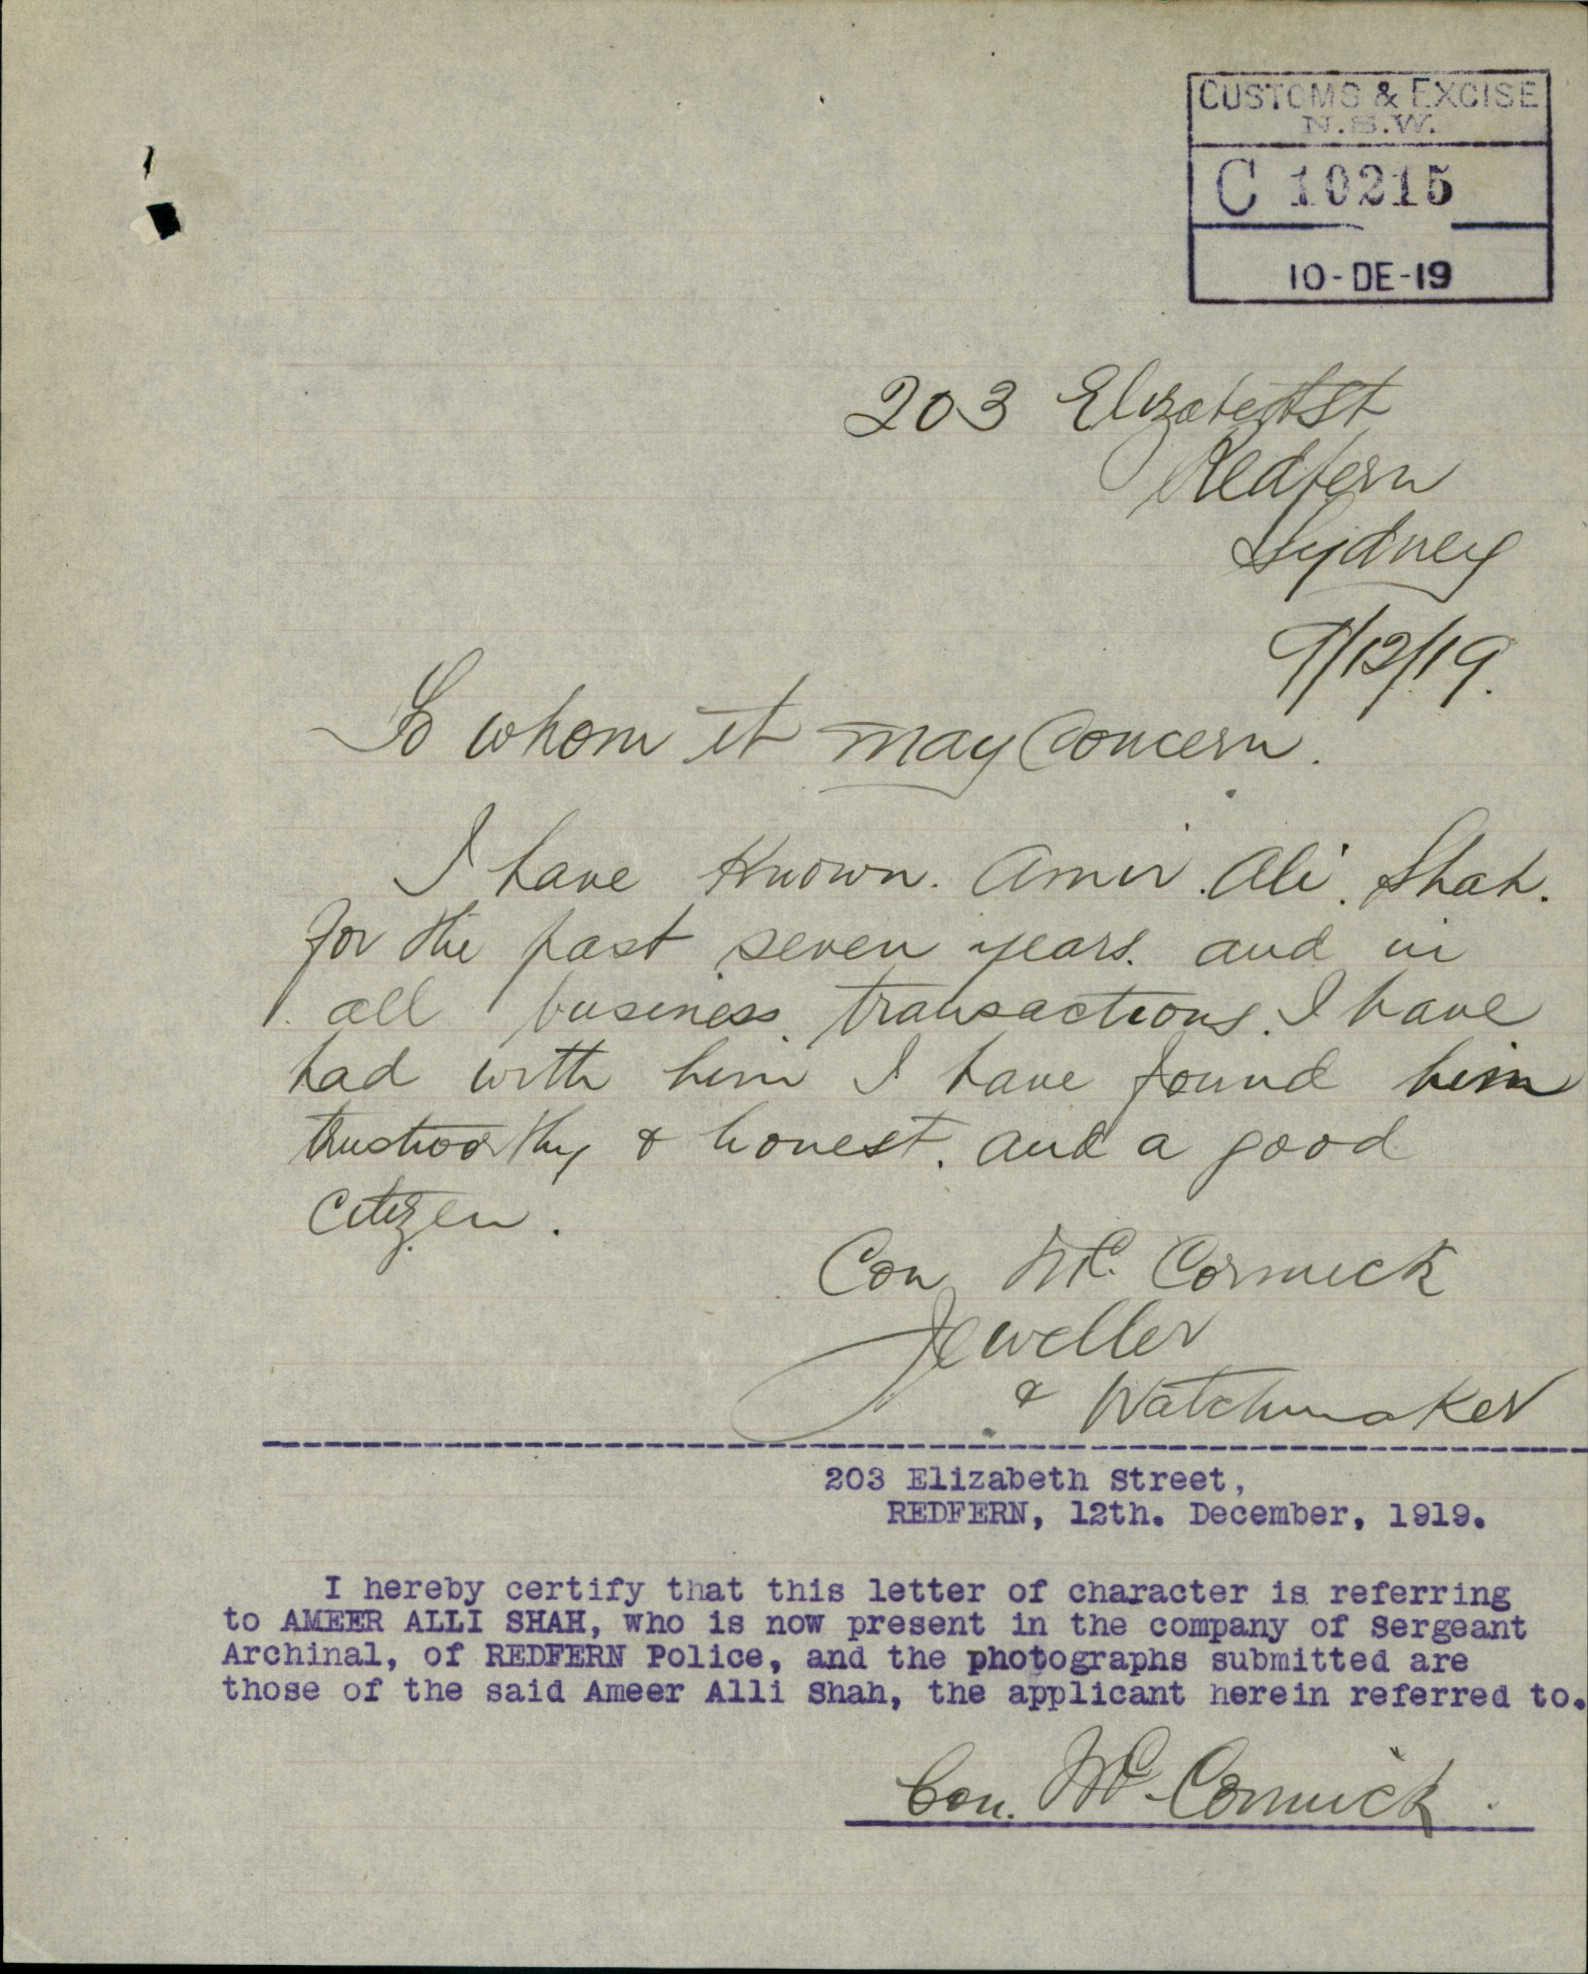 CUSTOMS & EXCISE
N.S.W.
C 10215
10-DE-19
203 Elizabeth St
Redfern
Sydney
9/12/19.
To whom it may Concern.
I have known. Amir. Ali. Shah.
for the past seven years. and in
all business transactions. I have
had with him I have found him
trustworthy & honest. and a good
Citizen.
Con Mc. Cormick
Jeweller
& Watchmaker
203 Elizabeth Street,
REDFERN, 12th. December, 1919.
I hereby certify that this letter of character is referring
to AMEER ALLI SHAH, who is now present in the company of Sergeant
Archinal, of REDFERN Police, and the photographs submitted are
those of the said Ameer Alli Shah, the applicant herein referred to.
Con. Mc Cormick.